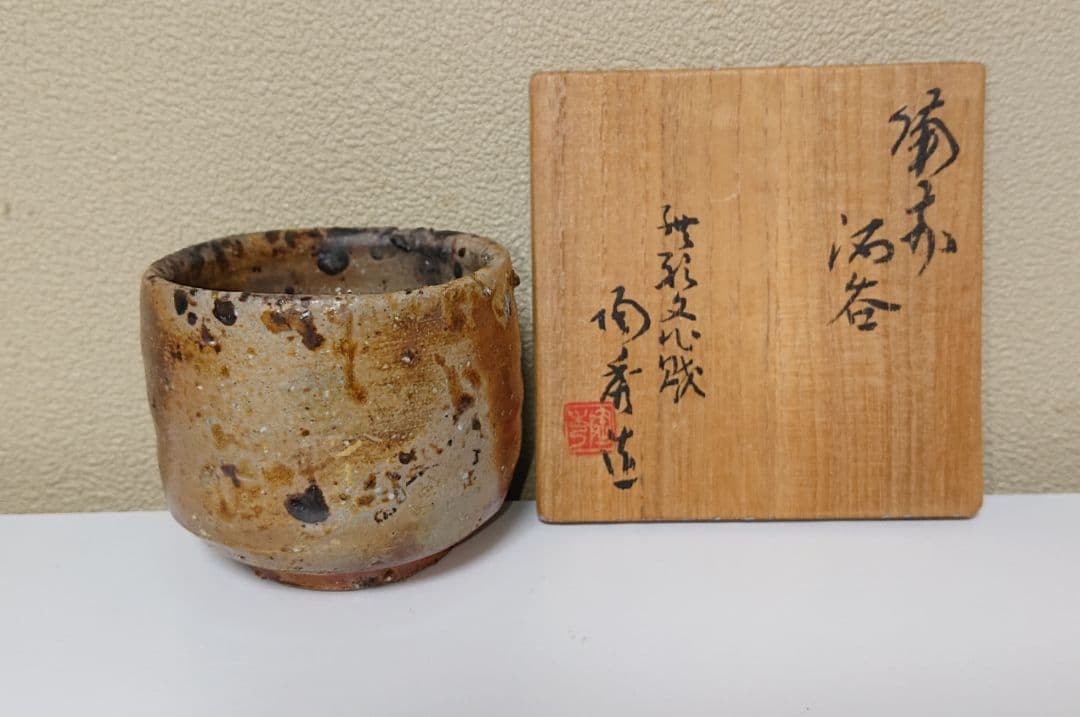 備前
酒呑
無形文化財
陶秀造